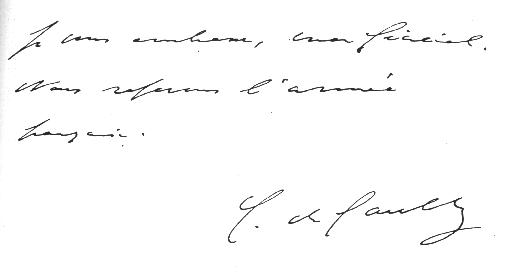 Je vous embrasse, mon Général.
Nous referons l'armée
française.
C. de Gaulle